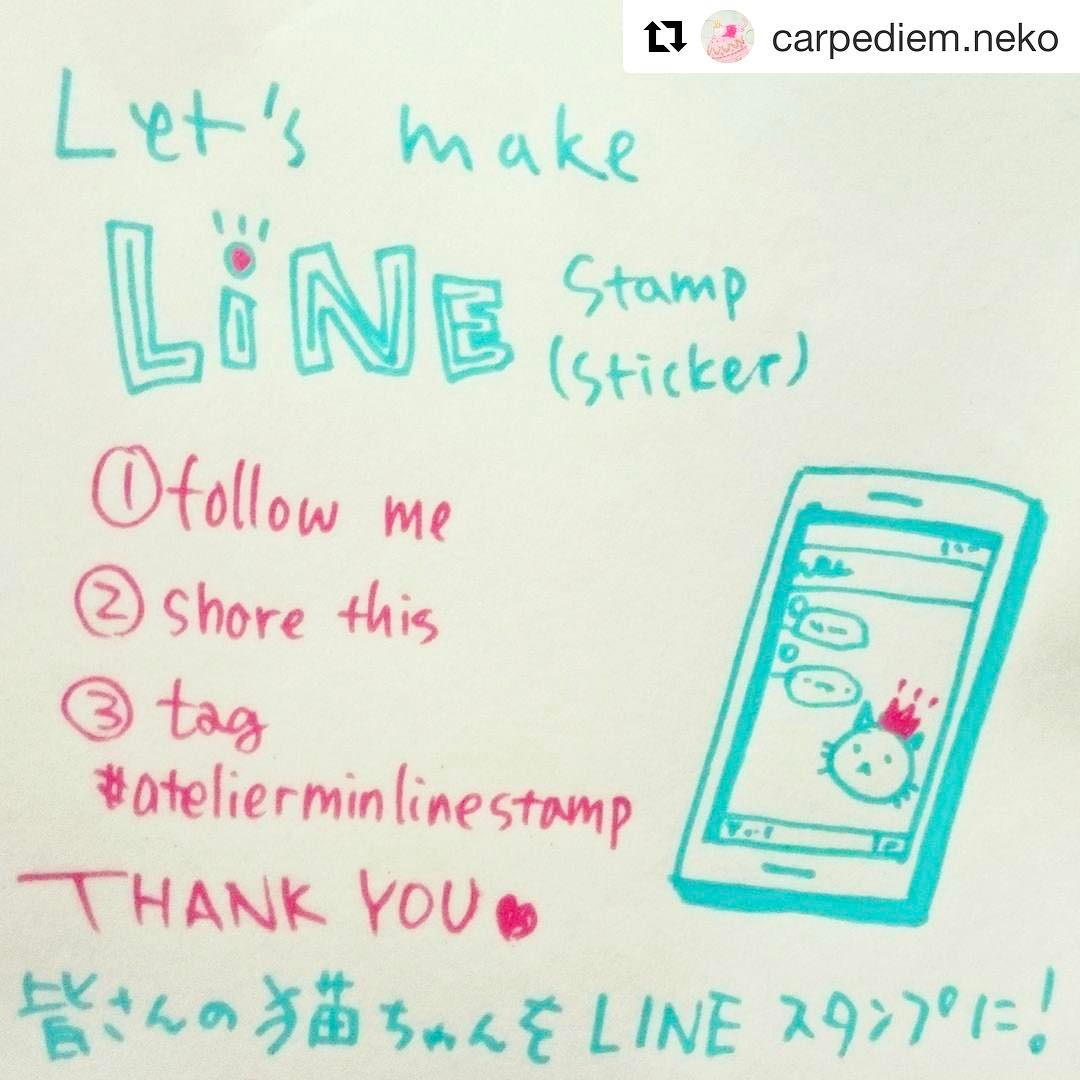 carpediem.neko
Let's make
LiNE stamp
(sticker)
①follow me
②share this
③tag
#atelierminlinestamp
THANK YOU
皆さんの猫ちゃんをLINEスタンプに!